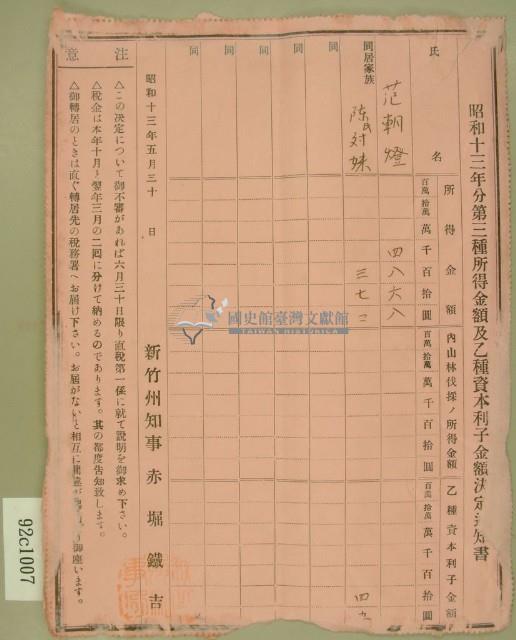 昭和十三年分第三種所得金額及乙種資本利子金額決定通知書
氏名
所得金額
內山林伐採ノ所得金額
乙種資本利子金額
百萬 拾萬 萬 千 百 拾 圓
百萬 拾萬 萬 千 百 拾 圓
百萬 拾萬 萬 千 百 拾 圓
范朝燈
四八六八
同居家族
陳氏对妹
三七二
四
同
同
同
同
同
昭和十三年五月三十日
新竹州知事 赤堀鐵吉
注意
△この決定について御不審があれば六月三十日限り直稅第一係に就て說明を御求め下さい。
△稅金は本年十月と翌年三月の二囘に分けて納めるのであります。其の都度告知致します。
△御轉居のときは直ぐ轉居先の稅務署へお屆け下さい。お屆がないと相互に
り御座います。
國史館臺灣文獻館
TAIWAN HISTORICA
92c1007